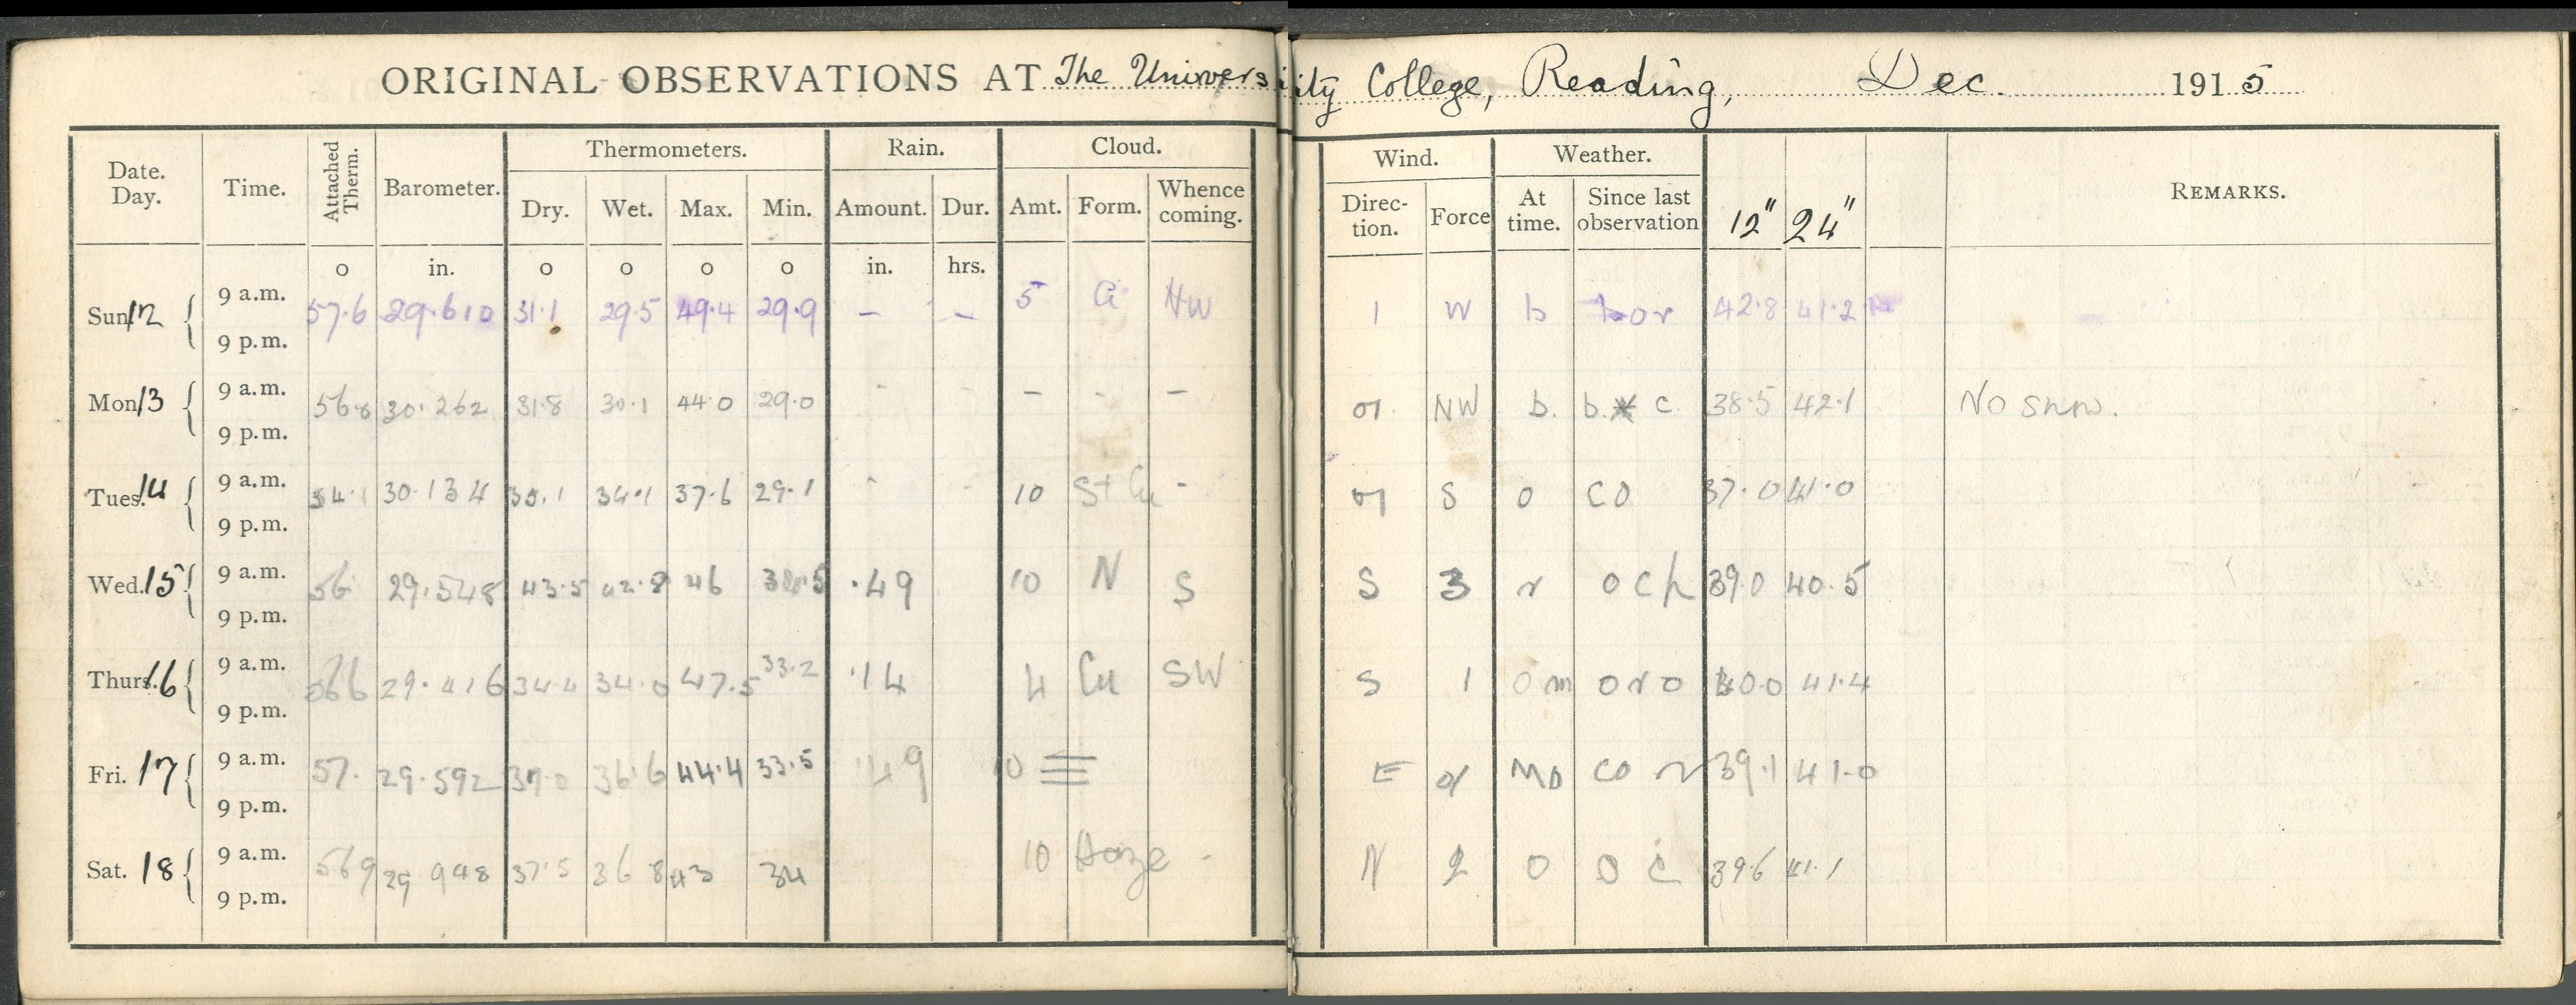 ORIGINAL OBSERVATIONS AT The University College, Reading, Dec. 1915
Date. Day. Time. Attached Therm. Barometer. Thermometers. Rain. Cloud. Wind. Weather. REMARKS.
Dry. Wet. Max. Min. Amount. Dur. Amt. Form. Whence coming. Direction. Force At time. Since last observation 12" 24"
o in. o o o o in. hrs.
Sun 12 9 a.m. 57.6 29.610 31.1 29.5 49.4 29.9 – – 5 Ci NW 1 W b bor 42.8 41.2
9 p.m.
Mon 13 9 a.m. 56.8 30.262 31.8 30.1 44.0 29.0 - - – - – 01 NW b. b. c 38.5 42.1 No snow.
9 p.m.
Tues. 14 9 a.m. 54.1 30.134 35.1 34.1 37.6 29.1 - - 10 St Cu - 01 S o co 37.0 41.0
9 p.m.
Wed. 15 9 a.m. 56 29.548 43.5 42.8 46 .49 10 N S S 3 r o c p 39.0 40.5
9 p.m.
Thurs. 16 9 a.m. 566 29.416 34.4 34.0 47.5 33.2 .14 4 Cu SW S 1 o m o r o 40.0 41.4
9 p.m.
Fri. 17 9 a.m. 57. 29.592 37.0 36.6 44.4 33.5 10 ≡ E 01 Mo co r 39.1 41.0
9 p.m.
Sat. 18 9 a.m. 569 29 948 37.5 36 8 43 34 10 Haze - N 2 O O C 39.6 41.1
9 p.m.